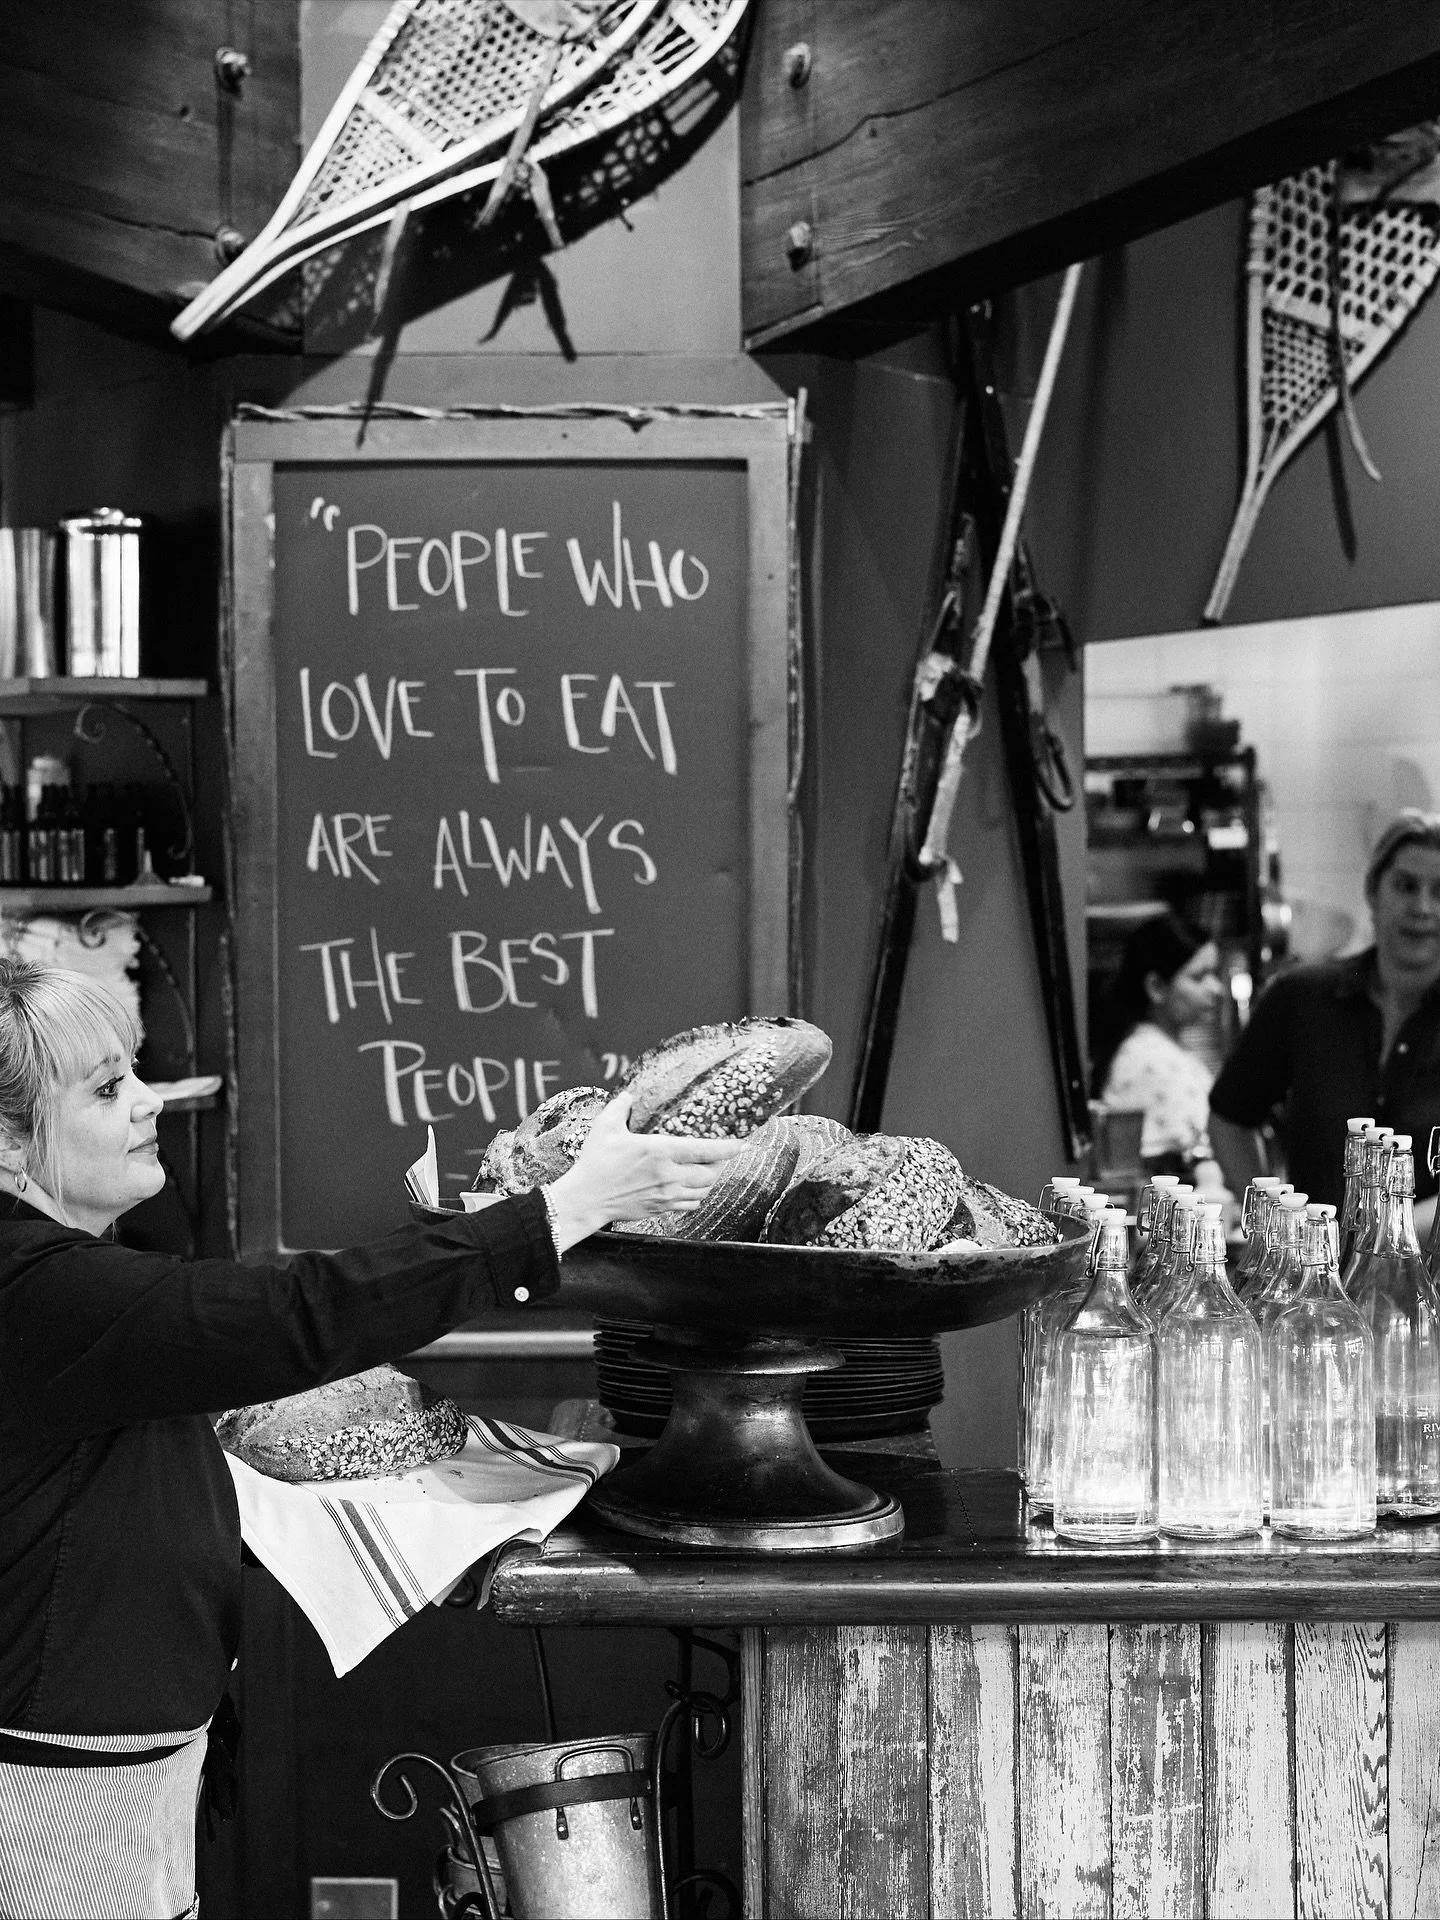 “PEOPLE WHO
LOVE TO EAT
ARE ALWAYS
THE BEST
PEOPLE”